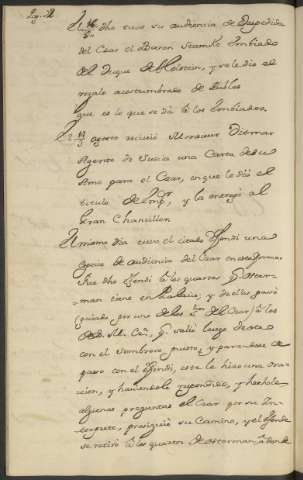 dho tuvo su audiencia de Despedida
del Czar el Baron Stamike Imbiado
del Duque de Holstein, y se le dio el
regalo acostumbrado de Rublos
que es lo que se dà à los Imbiados.
agosto recivió Monsieur Ditmar
Agente de Suecia una Carta de su
Amo para el Czar, en que le dió el
titulo de Impr, y la entregó al
Gran Chanciller
El mismo dia tuvo el citado Efendi una
especie de audiencia del Czar en esta forma:
Fue dho Efendi à los quartos q Oster-
man tiene en Palacio, y de ellos passó
guiado, por uno de los del Czar, à los
de S. M. Czna, q salió luego de ellos
con el Sombrero puesto, y parandose de
passo con el Efendi, este le hizo una ora-
cion, y haviendole respondido, y hechole
algunas preguntas el Czar por su In-
terprete, prosiguió su Camino, y el Efendi
se retiró à los quartos de Osterman, à donde